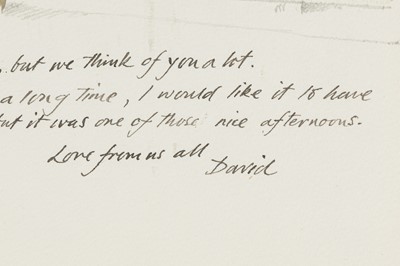 , but we think of you a lot.
a long time, I would like it to have
but it was one of those nice afternoons.
Love from us all
David